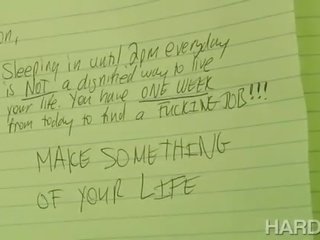 on,
Sleeping in until 2pm everyday
is NOT a dignified way to live
your life. You have ONE WEEK
from today to find a FUCKING JOB!!!
MAKE SOMETHING
OF YOUR LIFE
HARD